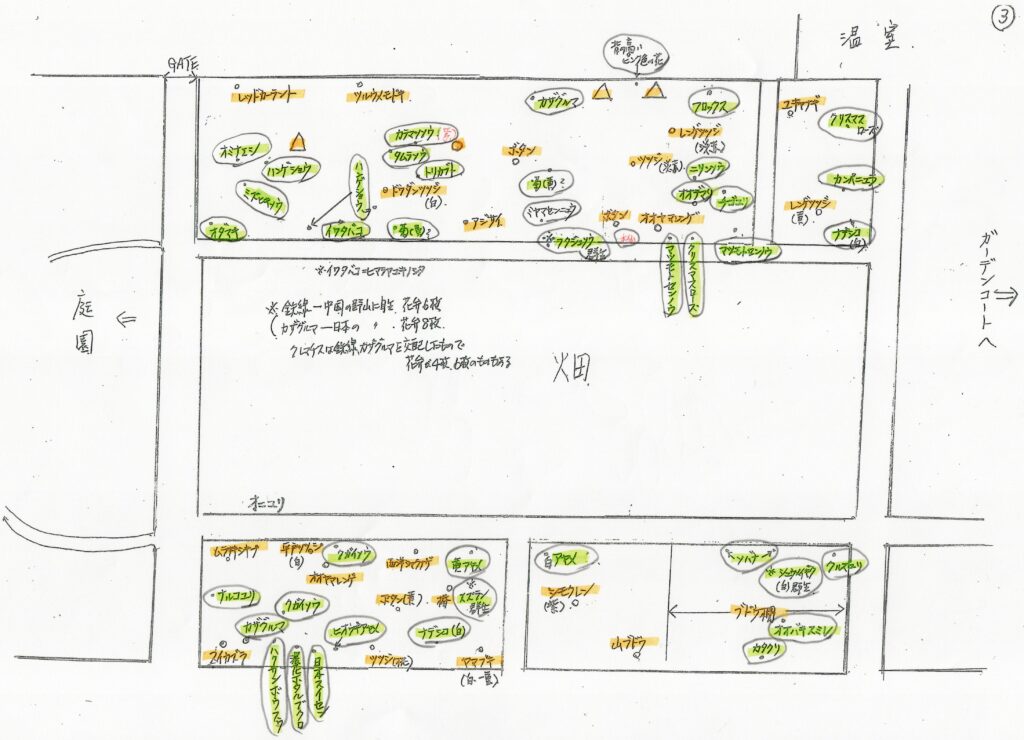 ③
温室
GATE
背の高い
ピンク色の花
レッドカーラント
ツルウメモドキ
カザグルマ
フロックス
ユキヤナギ
クリスマス
ローズ
オミナエシ
カラマツソウ
レンゲツツジ
ハンゲショウ
タムラソウ
トリカブト
ボタン
ツツジ
ニリンソウ
カンパニュラ
ハンゲショウ
ドウダンツツジ
(白)
菊(黄)?
オオデマリ
チゴユリ
レンゲツツジ
(黄)
ミヤマセンニュウ
オダマキ
イワタバコ
菊(黄)?
アジサイ
ボタン
オオヤマレンゲ
ナデシコ
群生
マツモトセンノウ
クリスマスローズ
マツモトセンノウ
※イワタバコ=ヒマラヤユキノシタ
※鉄線ー中国の野山に自生 花弁6枚
カザグルマー日本の 〃 花弁8枚
クレマチスは鉄線、カザグルマを交配したもので
花弁は4枚、6枚のものもある
畑
庭園
⇐
ガーデンコートへ
⇒
オニユリ
ムラサキシキブ
(白)
クガイソウ
黄アヤメ
白アヤメ
オオヤマレンゲ
ボタン(黄)
梅
※
スズラン
群生
クガイソウ
カザグルマ
ヒオウギアヤメ
ナデシコ(白)
シモクレン
(紫)
※
(白)群生
クルマユリ
ブドウ棚
オオバキスミレ
カタクリ
山ブドウ
スイカズラ
ツツジ
ヤマブキ
(白・黄)
ハクサンボウフウ
日本スイセン